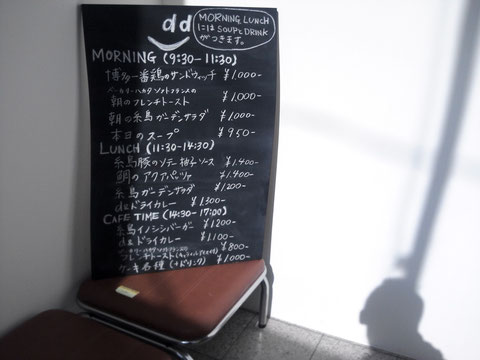 dd
MORNING LUNCH
にはSOUPとDRINK
がつきます。
MORNING (9:30-11:30)
博多一番鶏のサンドウィッチ ¥1.000-
ベーカリーハカタ ソフトフランスの
朝のフレンチトースト ¥1.000-
朝の糸島ガーデンサラダ ¥1.000-
本日のスープ ¥950-
LUNCH (11:30-14:30)
糸島豚のソテー柚子ソース ¥1.400-
鯛のアクアパッツァ ¥1.400-
糸島ガーデンサラダ ¥1.200-
ddドライカレー ¥1.300-
CAFE TIME (14:30-17:00)
糸島イノシシバーガー ¥1.200-
d&dドライカレー ¥1.100-
フレンチトースト ¥800-
ケーキ各種 (+ドリンク) ¥1.000-